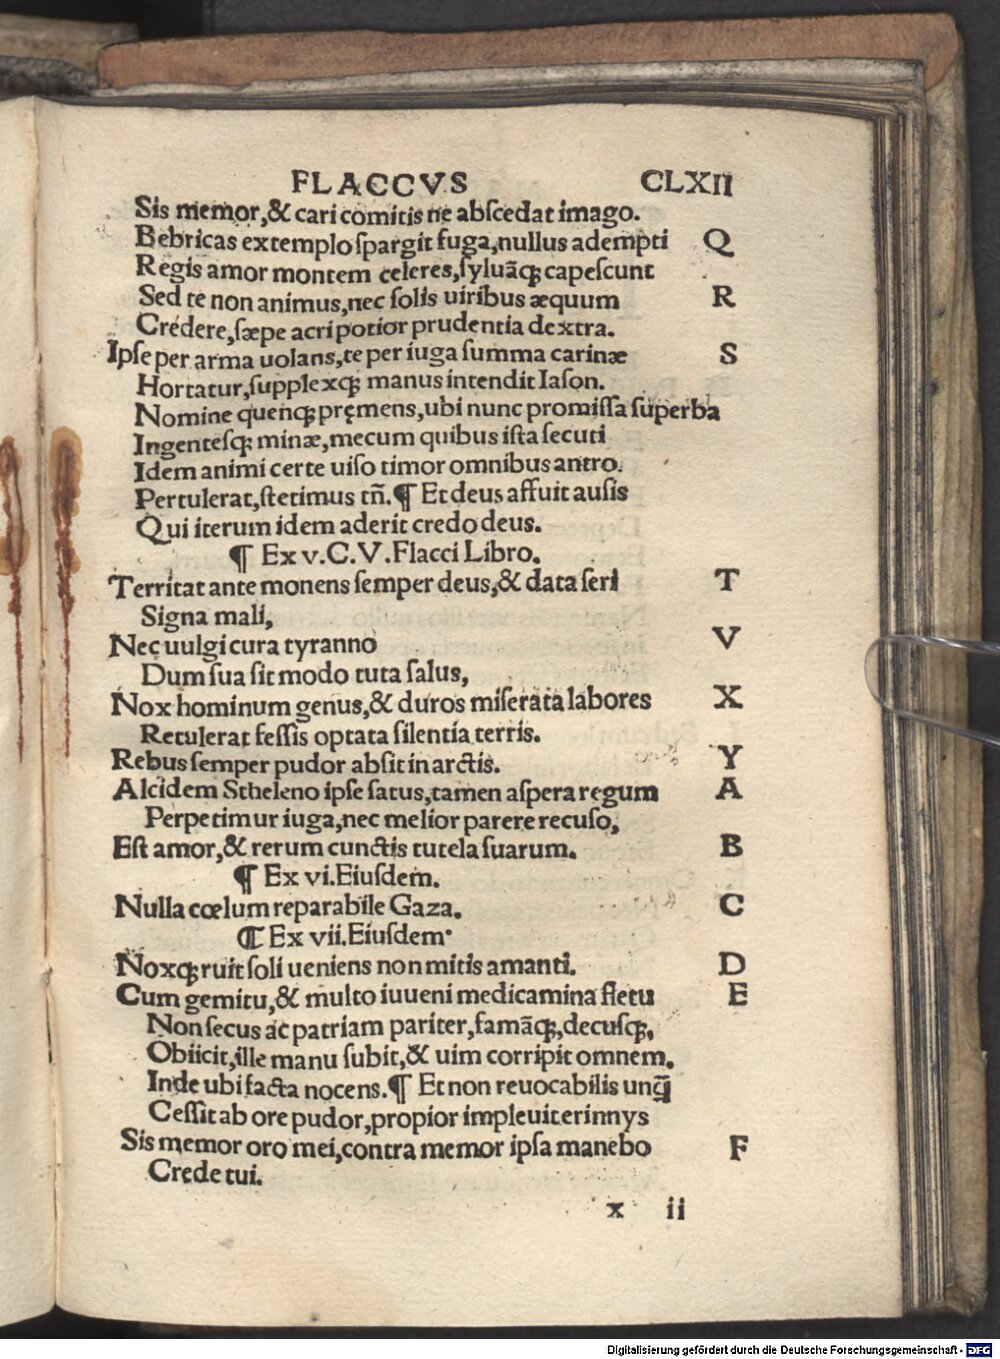 FLACCVS CLXII
Sis memor,& cari comitis ne abscedat imago.
Bebricas extemplo spargit fuga,nullus adempti Q
Regis amor montem celeres,syluãq; capescunt
Sed te non animus,nec solis uiribus æquum R
Credere,sæpe acri potior prudentia dextra.
Ipse per arma uolans,te per iuga summa carinæ S
Hortatur,supplexq; manus intendit Iason.
Nomine quenq; pręmens,ubi nunc promissa superba
Ingentesq; minæ,mecum quibus ista secuti
Idem animi certe uiso timor omnibus antro.
Pertulerat,stetimus tñ.¶ Et deus affuit ausis
Qui iterum idem aderit credo deus.
¶ Ex v.C.V.Flacci Libro.
Territat ante monens semper deus,& data seri T
Signa mali,
Nec uulgi cura tyranno V
Dum sua sit modo tuta salus,
Nox hominum genus,& duros miserata labores X
Retulerat fessis optata silentia terris.
Rebus semper pudor absit in arctis. Y
Alcidem Stheleno ipse satus,tamen aspera regum A
Perpetimur iuga,nec melior parere recuso,
Est amor,& rerum cunctis tutela suarum. B
¶ Ex vi.Eiusdem.
Nulla cœlum reparabile Gaza. C
¶ Ex vii.Eiusdem.
Noxq; ruit soli ueniens non mitis amanti. D
Cum gemitu,& multo iuueni medicamina fletu E
Non secus ac patriam pariter,famãq;,decusq;,
Obiicit,ille manu subit,& uim corripit omnem.
Inde ubi facta nocens.¶ Et non reuocabilis unq̃
Cessit ab ore pudor,propior impleuit erinnys
Sis memor oro mei,contra memor ipsa manebo F
Crede tui.
x ii
Digitalisierung gefördert durch die Deutsche Forschungsgemeinschaft - DFG